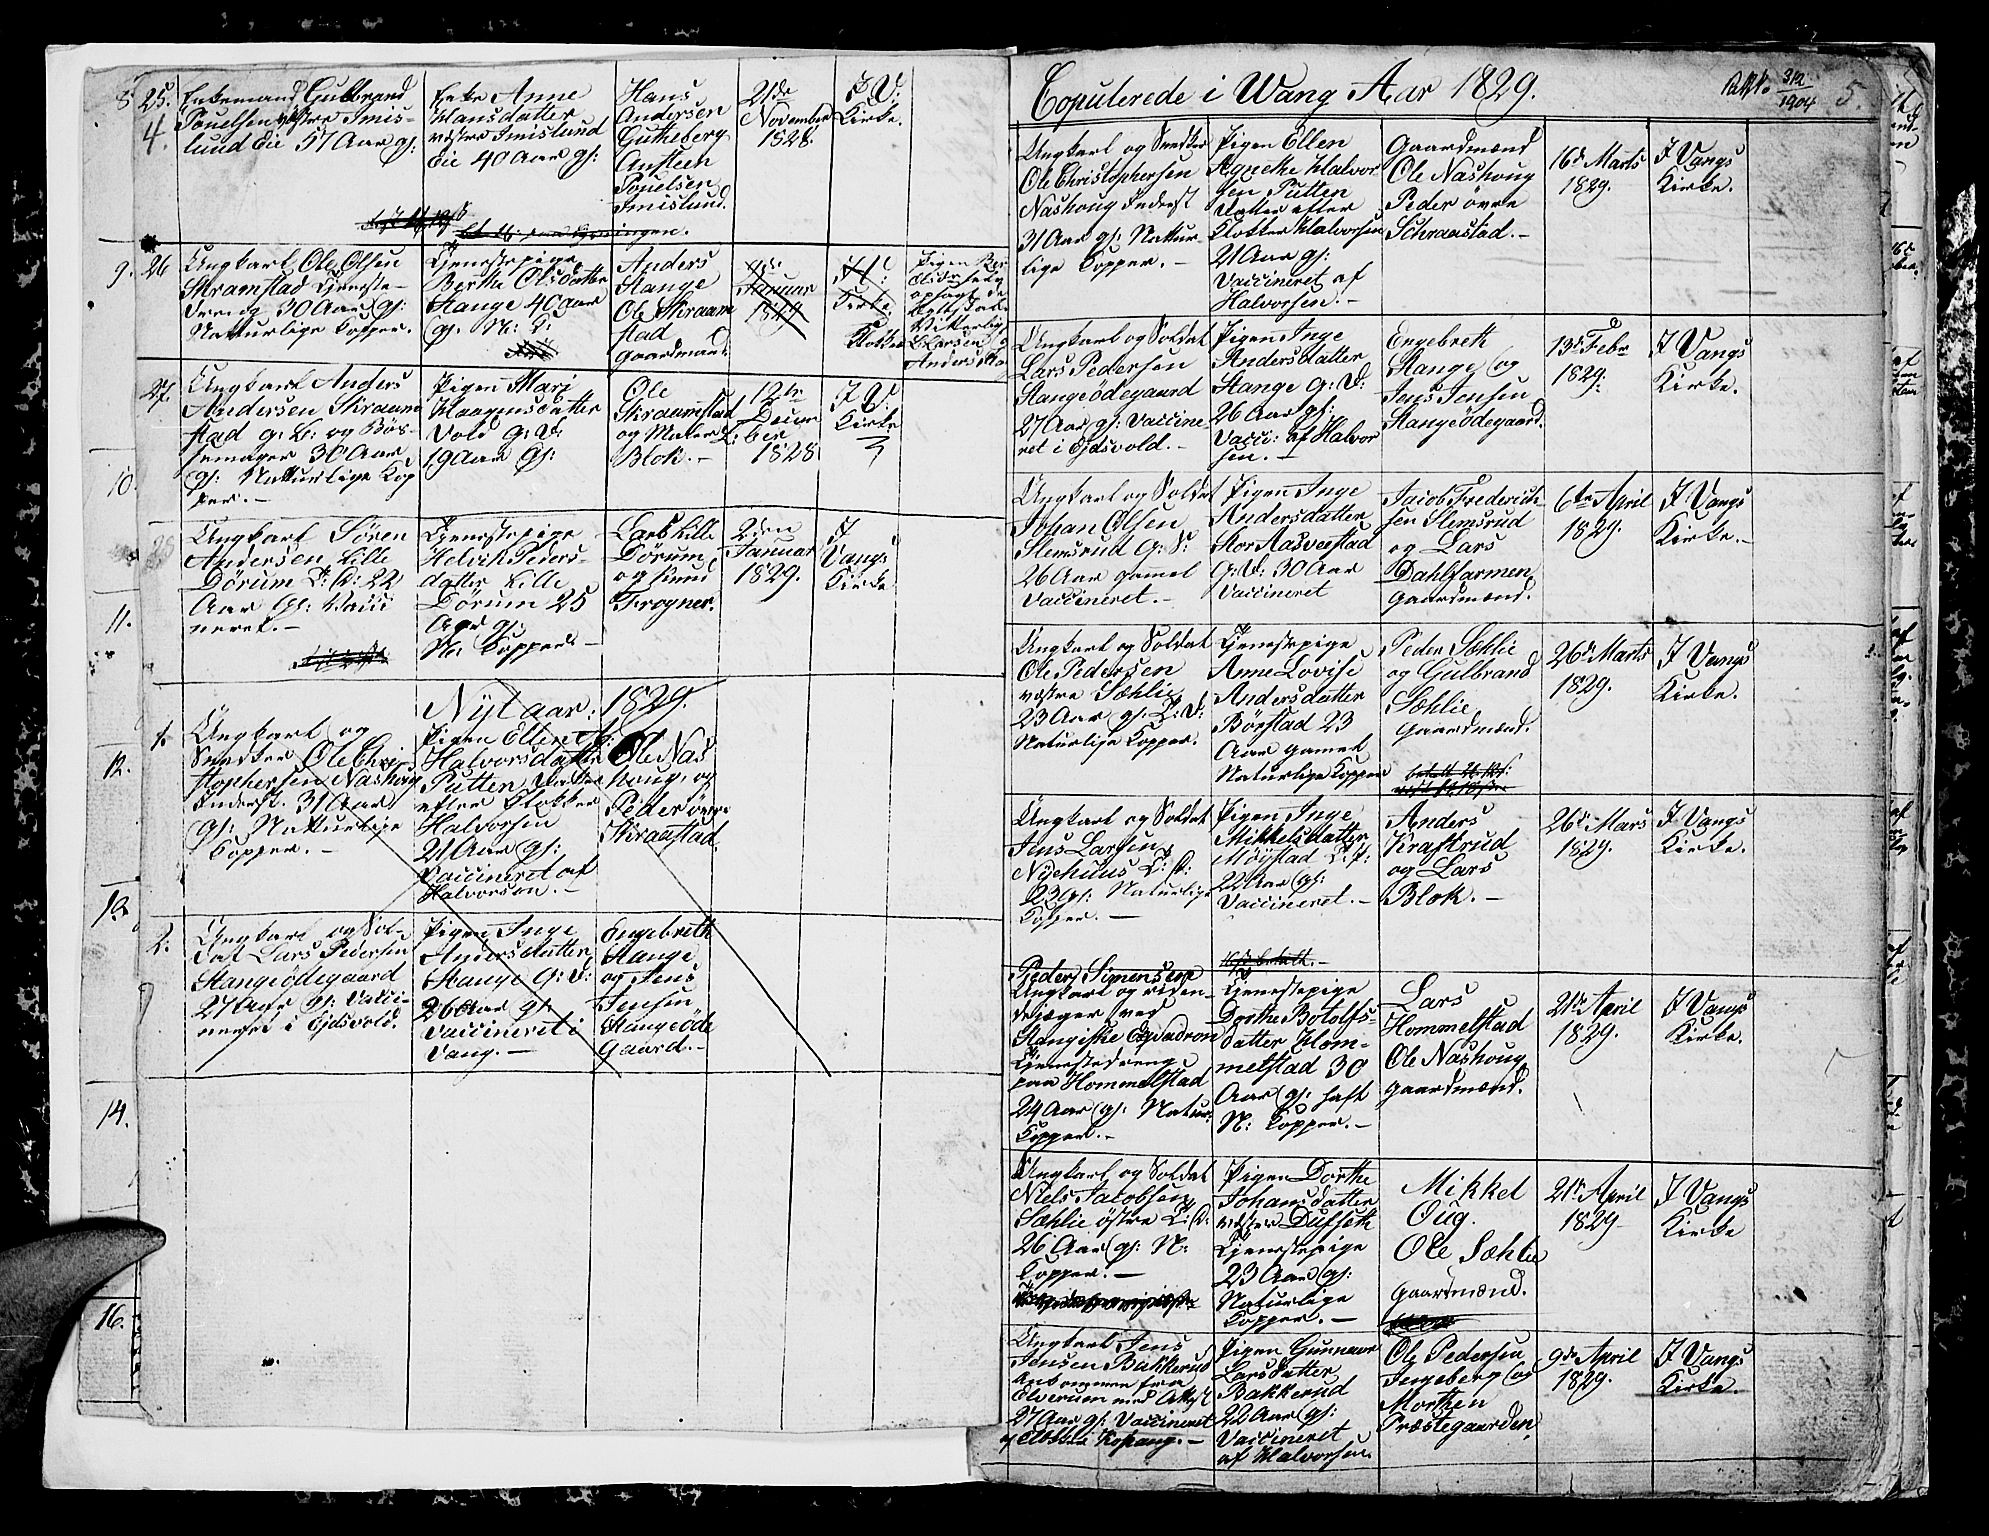 25.
Enkemand Gulbrand
Pouelsen västre Imis-
lund Eie 57 Aar gl:
Enke Anne
Hansdatter
västre Imislund
Eie 40 Aar gl:
Hans
Andersen
Gutheberg
Anfteen
Pouelsen
Imislund.
21de
November
1828.
I V:
Kirke.
9.
26
Ungkarl Ole Olsen
Skramstad Tjeneste-
dreng 30 Aar gl:
Naturlige Kopper.
Tjenestepige
Berthe Olsdatter
Stange 40 aar
gl. N: K:
Anders
Stange
Ole Skraam
stad
Gaardmænd
Januar
1829
Kirke
27.
Ungkarl Anders
Andersen Skraam
stad G. S: og Bös-
semager 30 Aar
gl: Naturlige Kop
per. –
Pigen Mari
Haagensdatter
Vold G. D:
19 Aar gl:
Ole
Skraamstad
og Maler L:
Blok. –
12te
Decem
ber
1828
I V:
Kirke
10.
Ungkarl Sören
Andersen Lille
Dörum T: D: 22
Aar Gl: Vacci
neret. –
Tjenestepige
Helvik Peders-
datter Lille
Dörum 25
Aar gl:
N: Kopper –
Lars Lille
Dörum
og Knud
Frogner.
2den
Januar
1829.
I
Vangs
Kirke
11.
Nyt aar: 1829.
1.
Ungkarl og
Snedker Ole Chri
stophersen Nashoug
Inderst. 31 Aar
gl: Naturlige
Kopper. –
Pigen Ellen
Halvorsdatter
Putten, Datter
efter Klokker
Halvorsen
21 Aar gl:
Vaccineret af
Halvorsen. –
Ole Nas
houg, og
Peder övre
Skraastad
12.
13.
2.
Ungkarl og Sol-
dat Lars Pedersen
Stangeödegaard
27 Aar gl: Vacci-
neret i Ejdsvold.
Pigen Inge
Andersdatter
Stange G: D:
26 Aar gl:
Vaccineret i
Vang. –
Engebreth
Stange
og Jens
Jensen
Stangeöde
gaard. –
14.
16.
Copulerede i Wang Aar 1829.
1904
5.
Ungkarl og Snedker
Ole Christophersen
Nashoug Inderst
31 Aar gl: Natur-
lige Kopper. –
Pigen Ellen
Agnethe Halvor
sen Putten
Datter efter
Klokker Halvorsen
21 Aar gl:
Vaccineret af
Halvorsen. –
Gaardmænd
Ole Nashoug
Peder övre
Schraastad. –
16de Marts
1829.
I Vangs
Kirke.
Ungkarl og Soldat
Lars Pedersen
Stangeödegaard
27 Aar gl: Vaccine-
ret i Ejdsvold. –
Pigen Inge
Andersdatter
Stange G: D:
26 Aar gl:
Vacci: af Halvor
sen. –
Engebreth
Stange og
Jens Jensen
Stangeödegaard.
13de Febr
1829.
I Vangs
Kirke.
Ungkarl og Soldat
Johan Olsen
Stemsrud G: S:
26 Aar gammel
Vaccineret. –
Pigen Inge
Andersdatter
Stor Aasveestad
G: D: 30 Aar
Vaccineret
Jacob Frederich-
sen Stemsrud
og Lars
Dahlfarmen
Gaardmænd.
6te April
1829.
I Vangs
Kirke. –
Ungkarl og Soldat
Ole Pedersen
vestre Sæhlie
23 Aar gl: T: D:
Naturlige Kopper.
Tjenestepige
Anne Lovise
Andersdatter
Börstad 23
Aar gamel
Naturlige Kopper
Peder Sæhlie
og Gulbrand
Sæhlie
Gaardmænd.
26de Marts
1829.
I Vangs
Kirke.
Ungkarl og Soldat
Jens Larsen
Nyehuus T: D:
23 gl: Naturlige
Kopper. –
Pigen Inge
Mikkelsdatter
Möystad T. P:
22 Aar gl:
Vaccineret. –
Anders
Kraftrud
og Lars
Blok. –
26de Mars
1829.
I Vangs
Kirke.
Peder Simensen
Ungkarl og riden-
de jæger ved
Stangiske Esquadron
Tjenestedreng
paa Hommelstad
24 Aar gl: Natur.
Kopper. –
Tjenestepige
Dorthe Botolfs-
datter Hom-
melstad 30
Aar gl: haft
N: Kopper. –
Lars
Hommelstad
Ole Nashoug
Gaardmænd.
21de April
1829.
I Vangs
Kirke.
Ungkarl og Soldat
Niels Jacobsen
Sæhlie östre T: D:
26 Aar gl: N:
Kopper. –
Pigen Dorthe
Johansdatter
vestre Dufseth
Tjenestepige
23 Aar gl:
Naturlige
Kopper. –
Mikkel
Oug.
Ole Sæhlie
Gaardmænd.
21de April
1829
I Vangs
Kirke
Ungkarl Jens
Jensen Bakkerud
Ankommen fra
Elverum med Attest
27 Aar gl: Vaccineret
Pigen Gunnaur
Larsdatter
Bakkerud
22 Aar gl:
Vaccineret
af Halvorsen.
Ole Pedersen
Ingeberg og
Morthen
Præstegaarden.
9de April
1829.
I Vangs
Kirke.